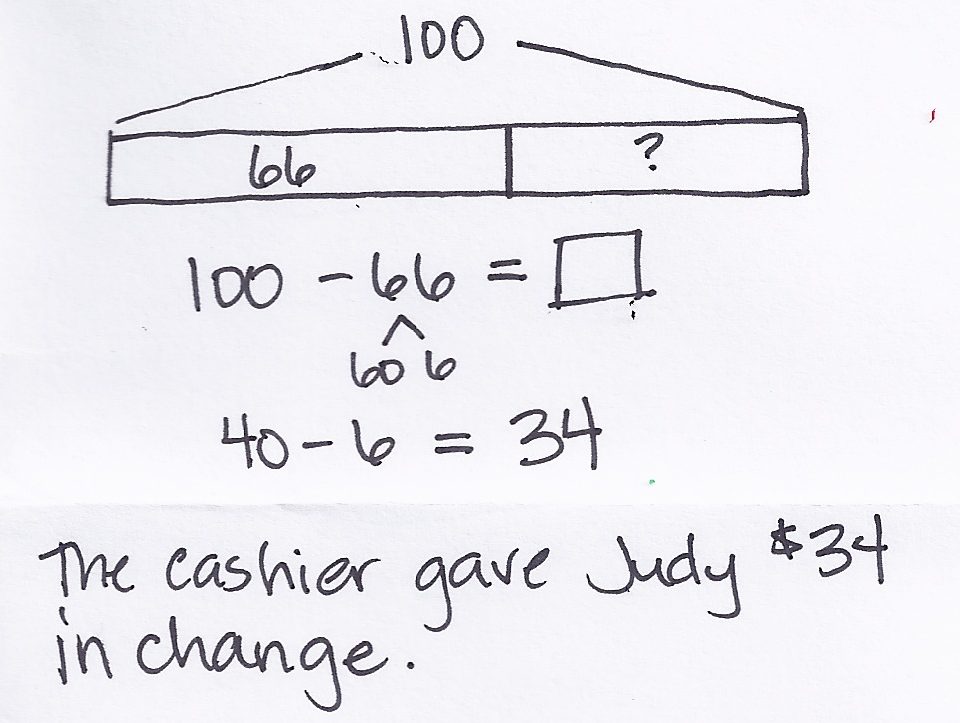 100
66 ?
100 - 66 = □
60 6
40 - 6 = 34
The cashier gave Judy $34
in change.